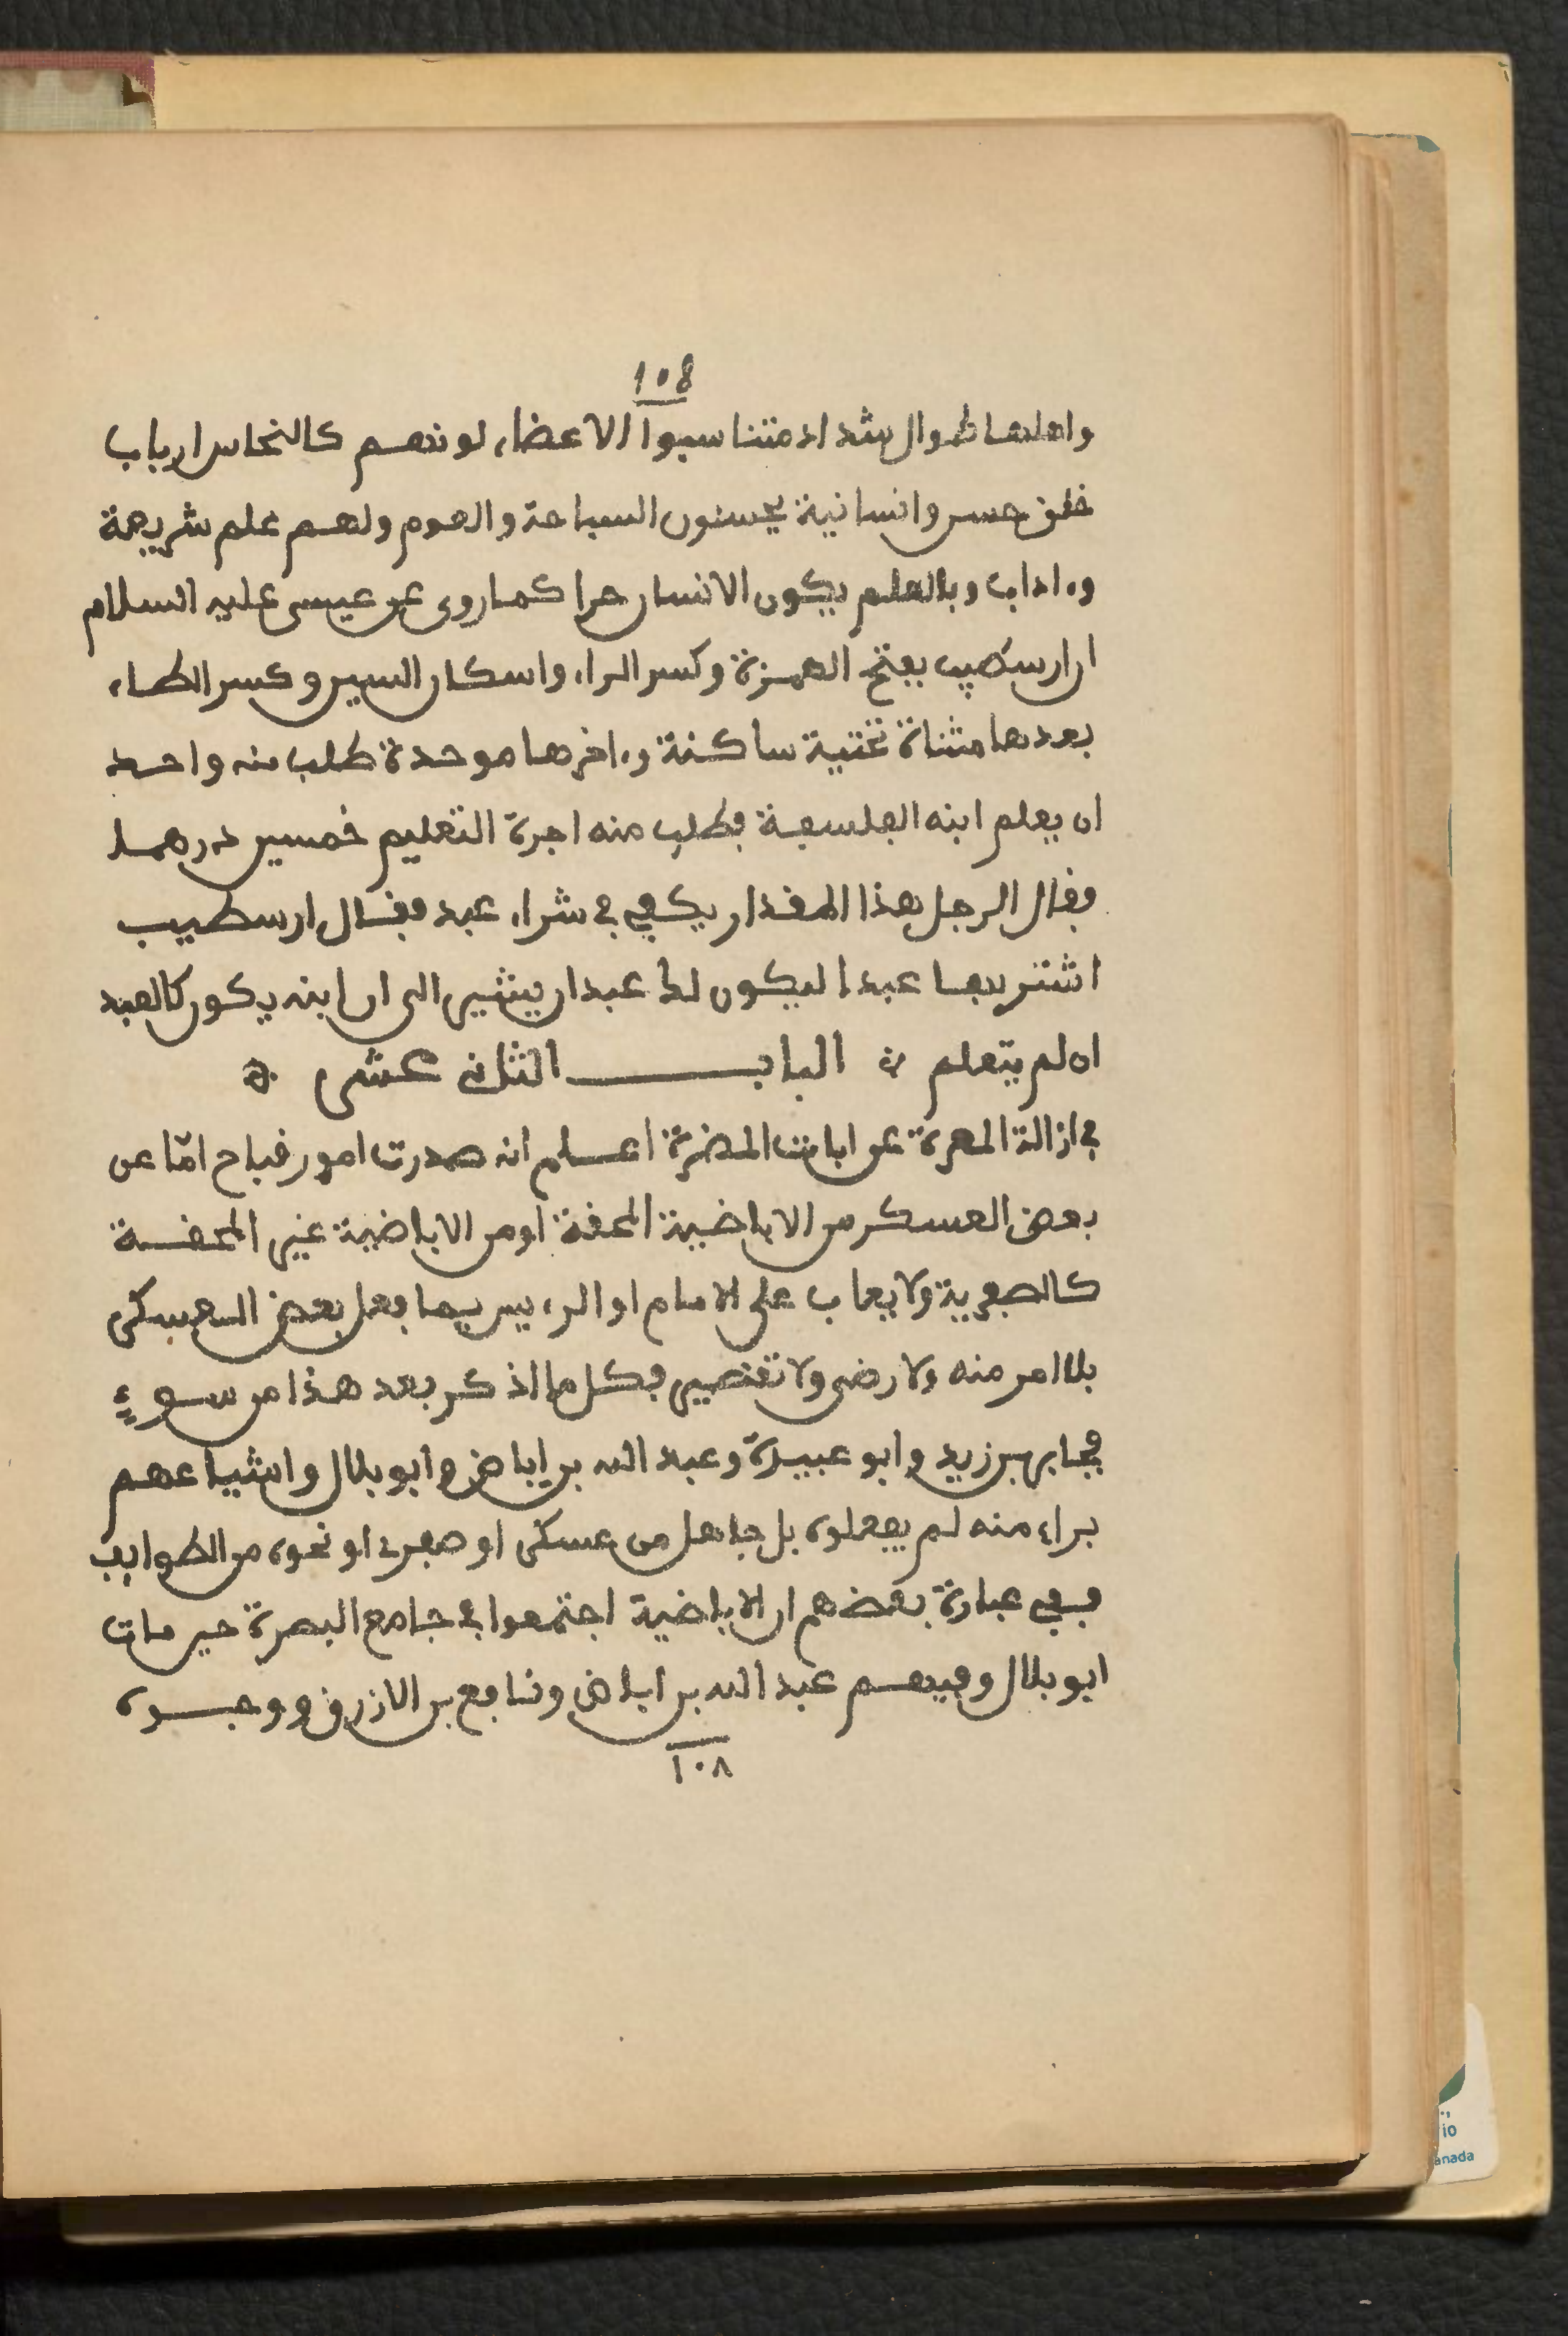 108
واهلها طوال شداد متناسبوا الاعضاء لونهم كالنحاس ارباب
خلق حسن وانسانية يحسنون السباحة والعوم ولهم علم شريعة
وءاداب وبالعلم يكون الانسان حرا كما روى عن عيسى عليه السلام
ان ارسطيب بفتح الهمزة وكسر الراء واسكان السين وكسر الطاء
بعدها مثناة تحتية ساكنة وءاخرها موحدة طلب منه واحد
ان يعلم ابنه الفلسفة فطلب منه اجرة التعليم خمسين درهما
فقال الرجل هذا المقدار يكفي في شراء عبد فقال ارسطيب
اشتر بها عبدا ليكون لك عبدان يشير الى ان ابنه يكون كالعبد
ان لم يتعلم ۞ البــاب الثاني عشر ۞
في ازالة المعرة عن اباضت المضرة اعلم انه صدرت امور قباح امّا عن
بعض العسكر من الاباضية المحقة او من الاباضية غير المحقة
كالصفرية ولا يعاب على الامام او الرءيس بما فعل بعض العسكر
بلا امر منه ولا رضى ولا تقصير فكل ما اذكر بعد هذا من سوءٍ
فجابر بن زيد وابو عبيدة وعبد الله بن اباض وابو بلال واشياعهم
براء منه لم يفعلوه بل جاهل من عسكر او صفرى او نحوه من الطوايف
ففي عبارة بعضهم ان الاباضية اجتمعوا في جامع البصرة حين مات
ابو بلال وفيهم عبد الله بن اباض ونافع بن الازرق ووجوه
١٠٨
io
anada